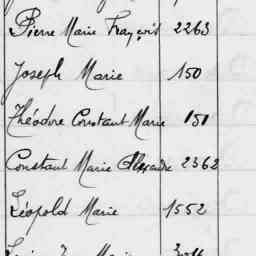 Pierre Marie François 2263
Joseph Marie 150
Théodore Constant Marie 151
Constant Marie Alexandre 2362
Léopold Marie 1552
Marie